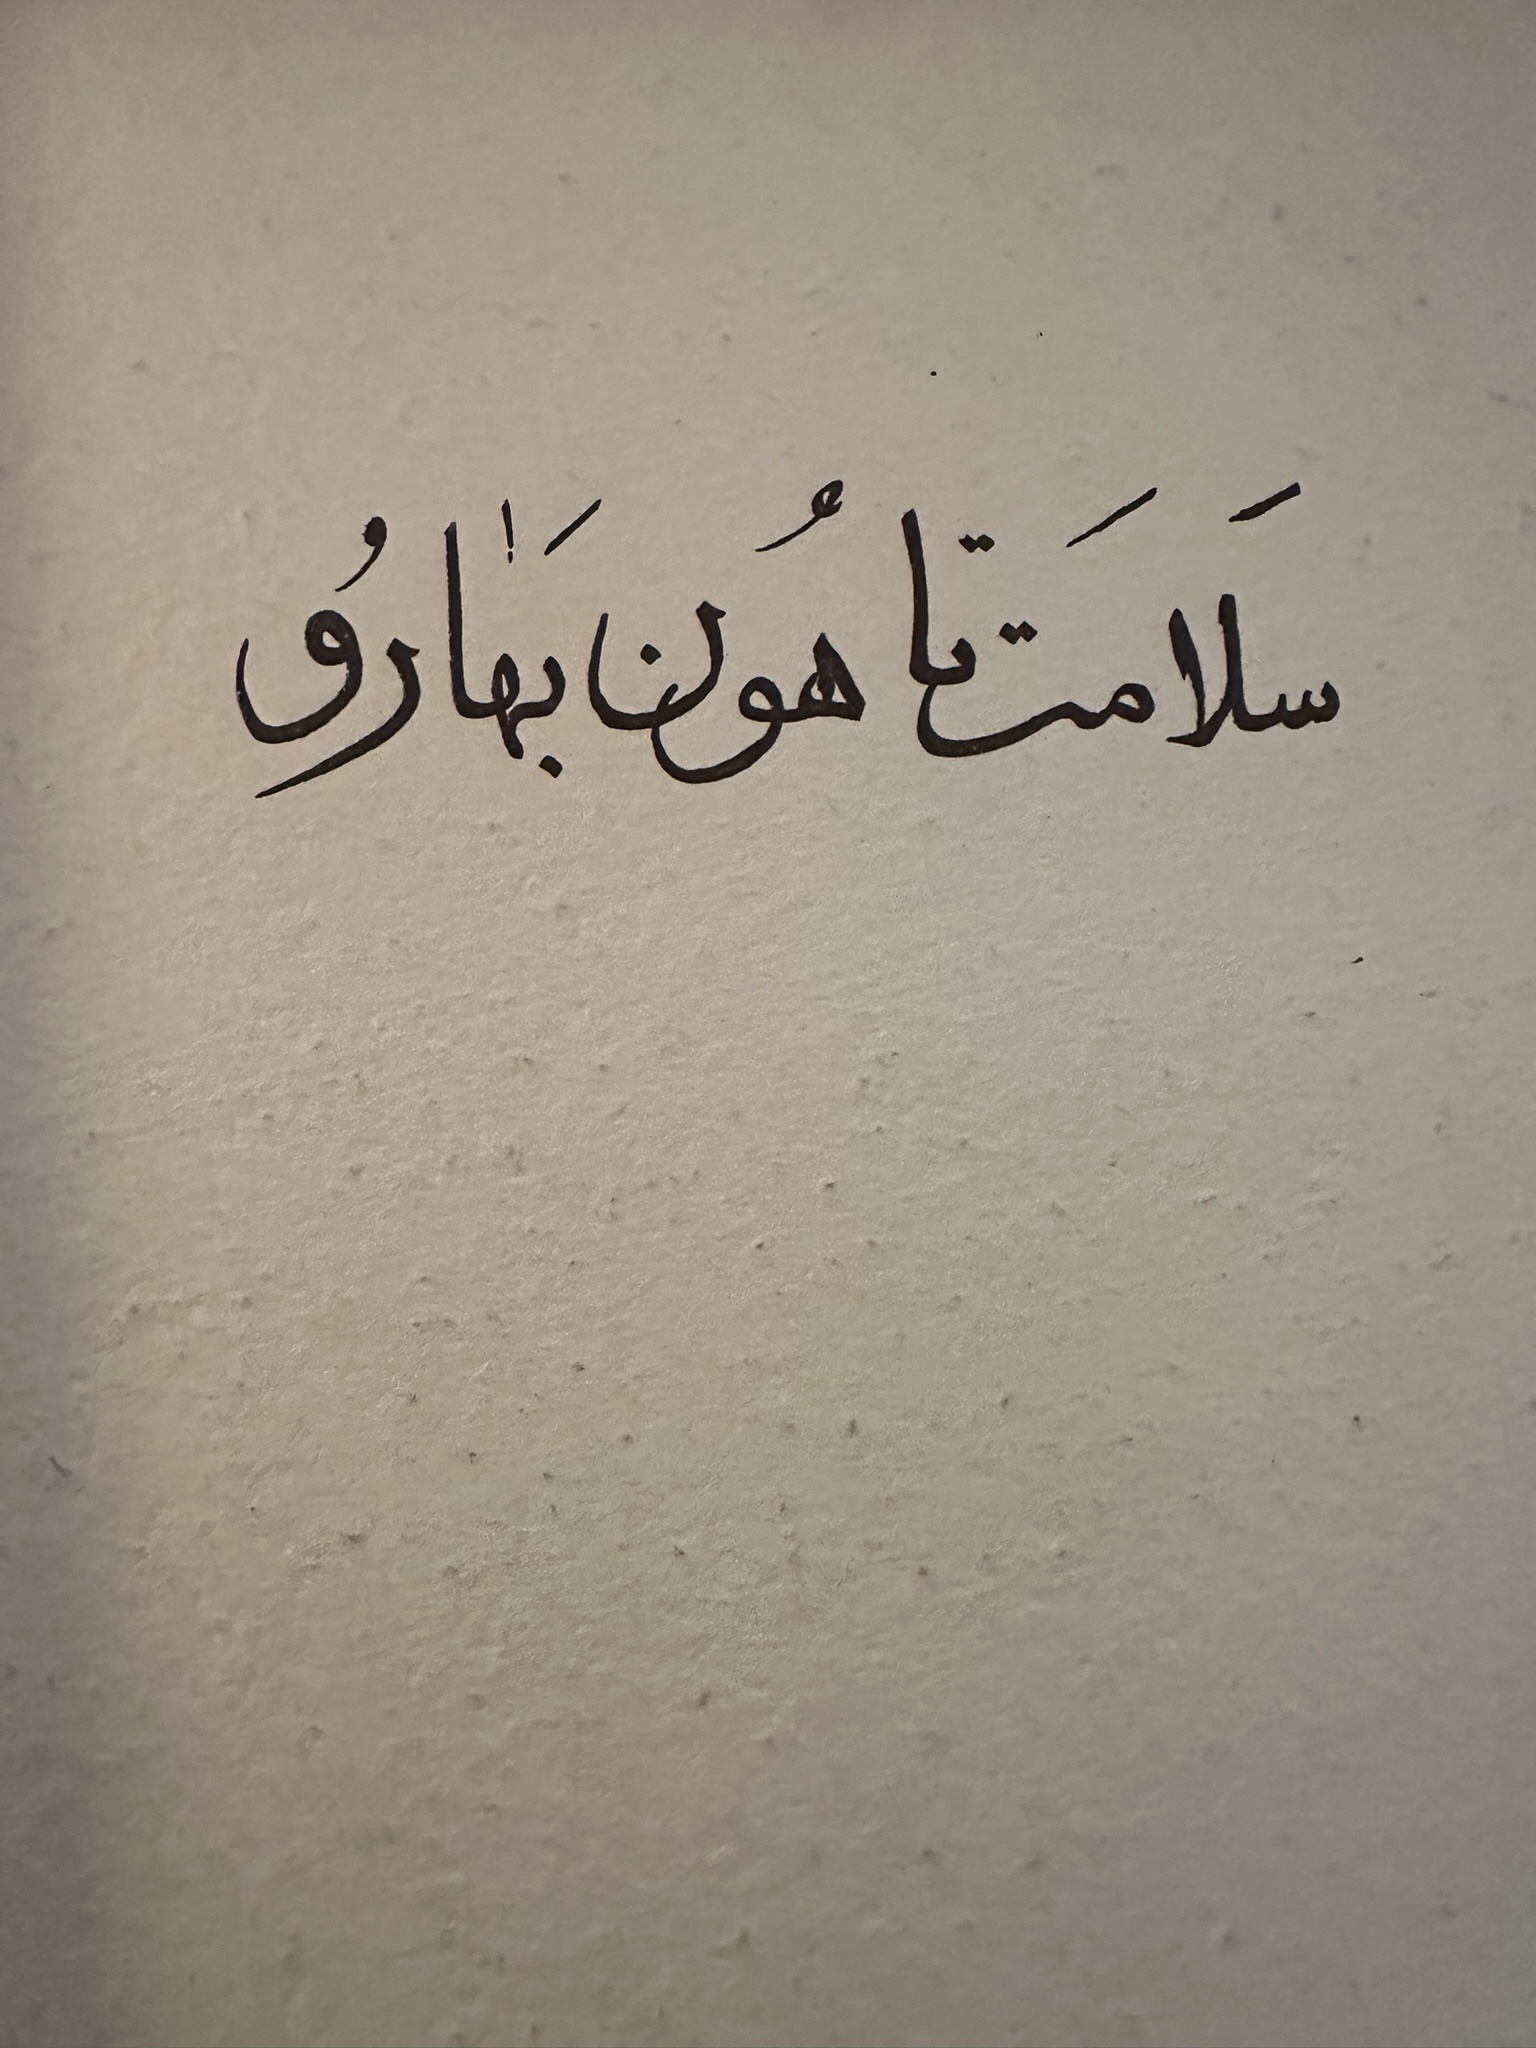 سَلَامَتْ تَاهُونْ بَهَارُو